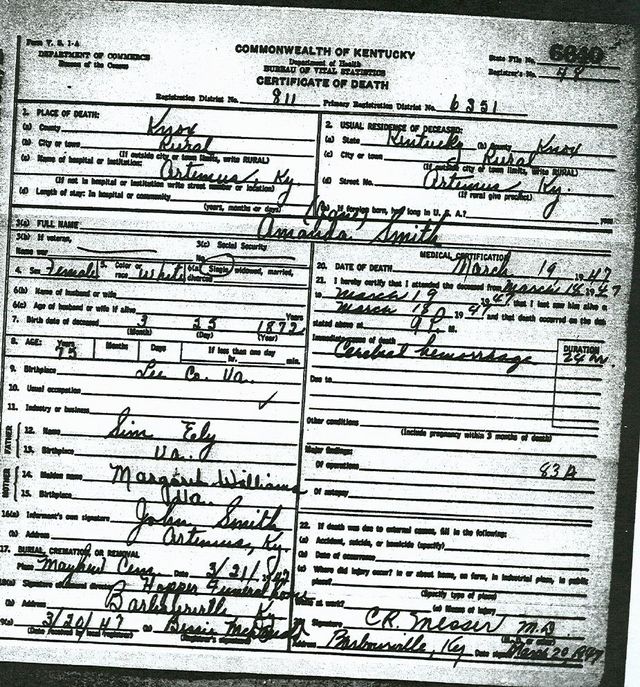 Form V. S. 1-A
DEPARTMENT OF COMMERCE
Bureau of the Census
COMMONWEALTH OF KENTUCKY
Department of Health
BUREAU OF VITAL STATISTICS
CERTIFICATE OF DEATH
State File No. 6840
Registrar's No. 48
Registration District No. 811 Primary Registration District No. 6351
1. PLACE OF DEATH:
(a) County Knox
(b) City or town Rural
(If outside city or town limits, write RURAL)
(c) Name of hospital or institution: Artemus, Ky.
(If not in hospital or institution write street number or location)
(d) Length of stay: In hospital or community
(years, months or days)
2. USUAL RESIDENCE OF DECEASED:
(a) State Kentucky (b) County Knox
(c) City or town Rural
(If outside city or town limits, write RURAL)
(d) Street No. Artemus Ky.
(If rural give precinct)
(e) If foreign born, how long in U. S. A.? years
3(a) FULL NAME Amanda Smith
3(b) If veteran, 3(c) Social Security
Name war No.
4. Sex Female 5. Color or race White 6(a) Single, widowed, married, divorced
6(b) Name of husband or wife
6(c) Age of husband or wife if alive Years
7. Birth date of deceased 3 25 1872
(Month) (Day) (Year)
8. AGE: Years 75 Months Days If less than one day hr. min.
9. Birthplace Lee Co. Va.
10. Usual occupation
11. Industry or business
FATHER
12. Name Sim Ely
13. Birthplace Va.
MOTHER
14. Maiden name Margaret Williams
15. Birthplace Va.
16(a) Informant's own signature John Smith
(b) Address Artemus, Ky.
17. BURIAL, CREMATION OR REMOVAL
Place Mayhew Cem. Date 3/21/1947
18(a) Signature of funeral director Hopper Funeral Home
(b) Address Barbourville Ky
19(a) 3/20/47 (b) Bessie
(Date received by local registrar) (Registrar's signature)
MEDICAL CERTIFICATION
20. DATE OF DEATH March 19 1947
21. I hereby certify that I attended the deceased from March 18 1947
to March 19 1947 that I last saw him alive on
March 18 1947 and that death occurred on the date
stated above at 9 P. M.
Immediate cause of death
Cerebral hemorrhage
DURATION
24 hr.
Due to
Other conditions
(Include pregnancy within 3 months of death)
Major findings:
Of operations 83A
Of autopsy
22. If death was due to external causes, fill in the following:
(a) Accident, suicide, or homicide (specify)
(b) Date of occurrence
(c) Where did injury occur? in or about home, on farm, in industrial place, in public place?
(Specify type of place)
While at work? (e) Means of injury
23. Signature C.R. Messer M.D.
(M. D. or other)
Address Barbourville, Ky Date signed March 20, 1947